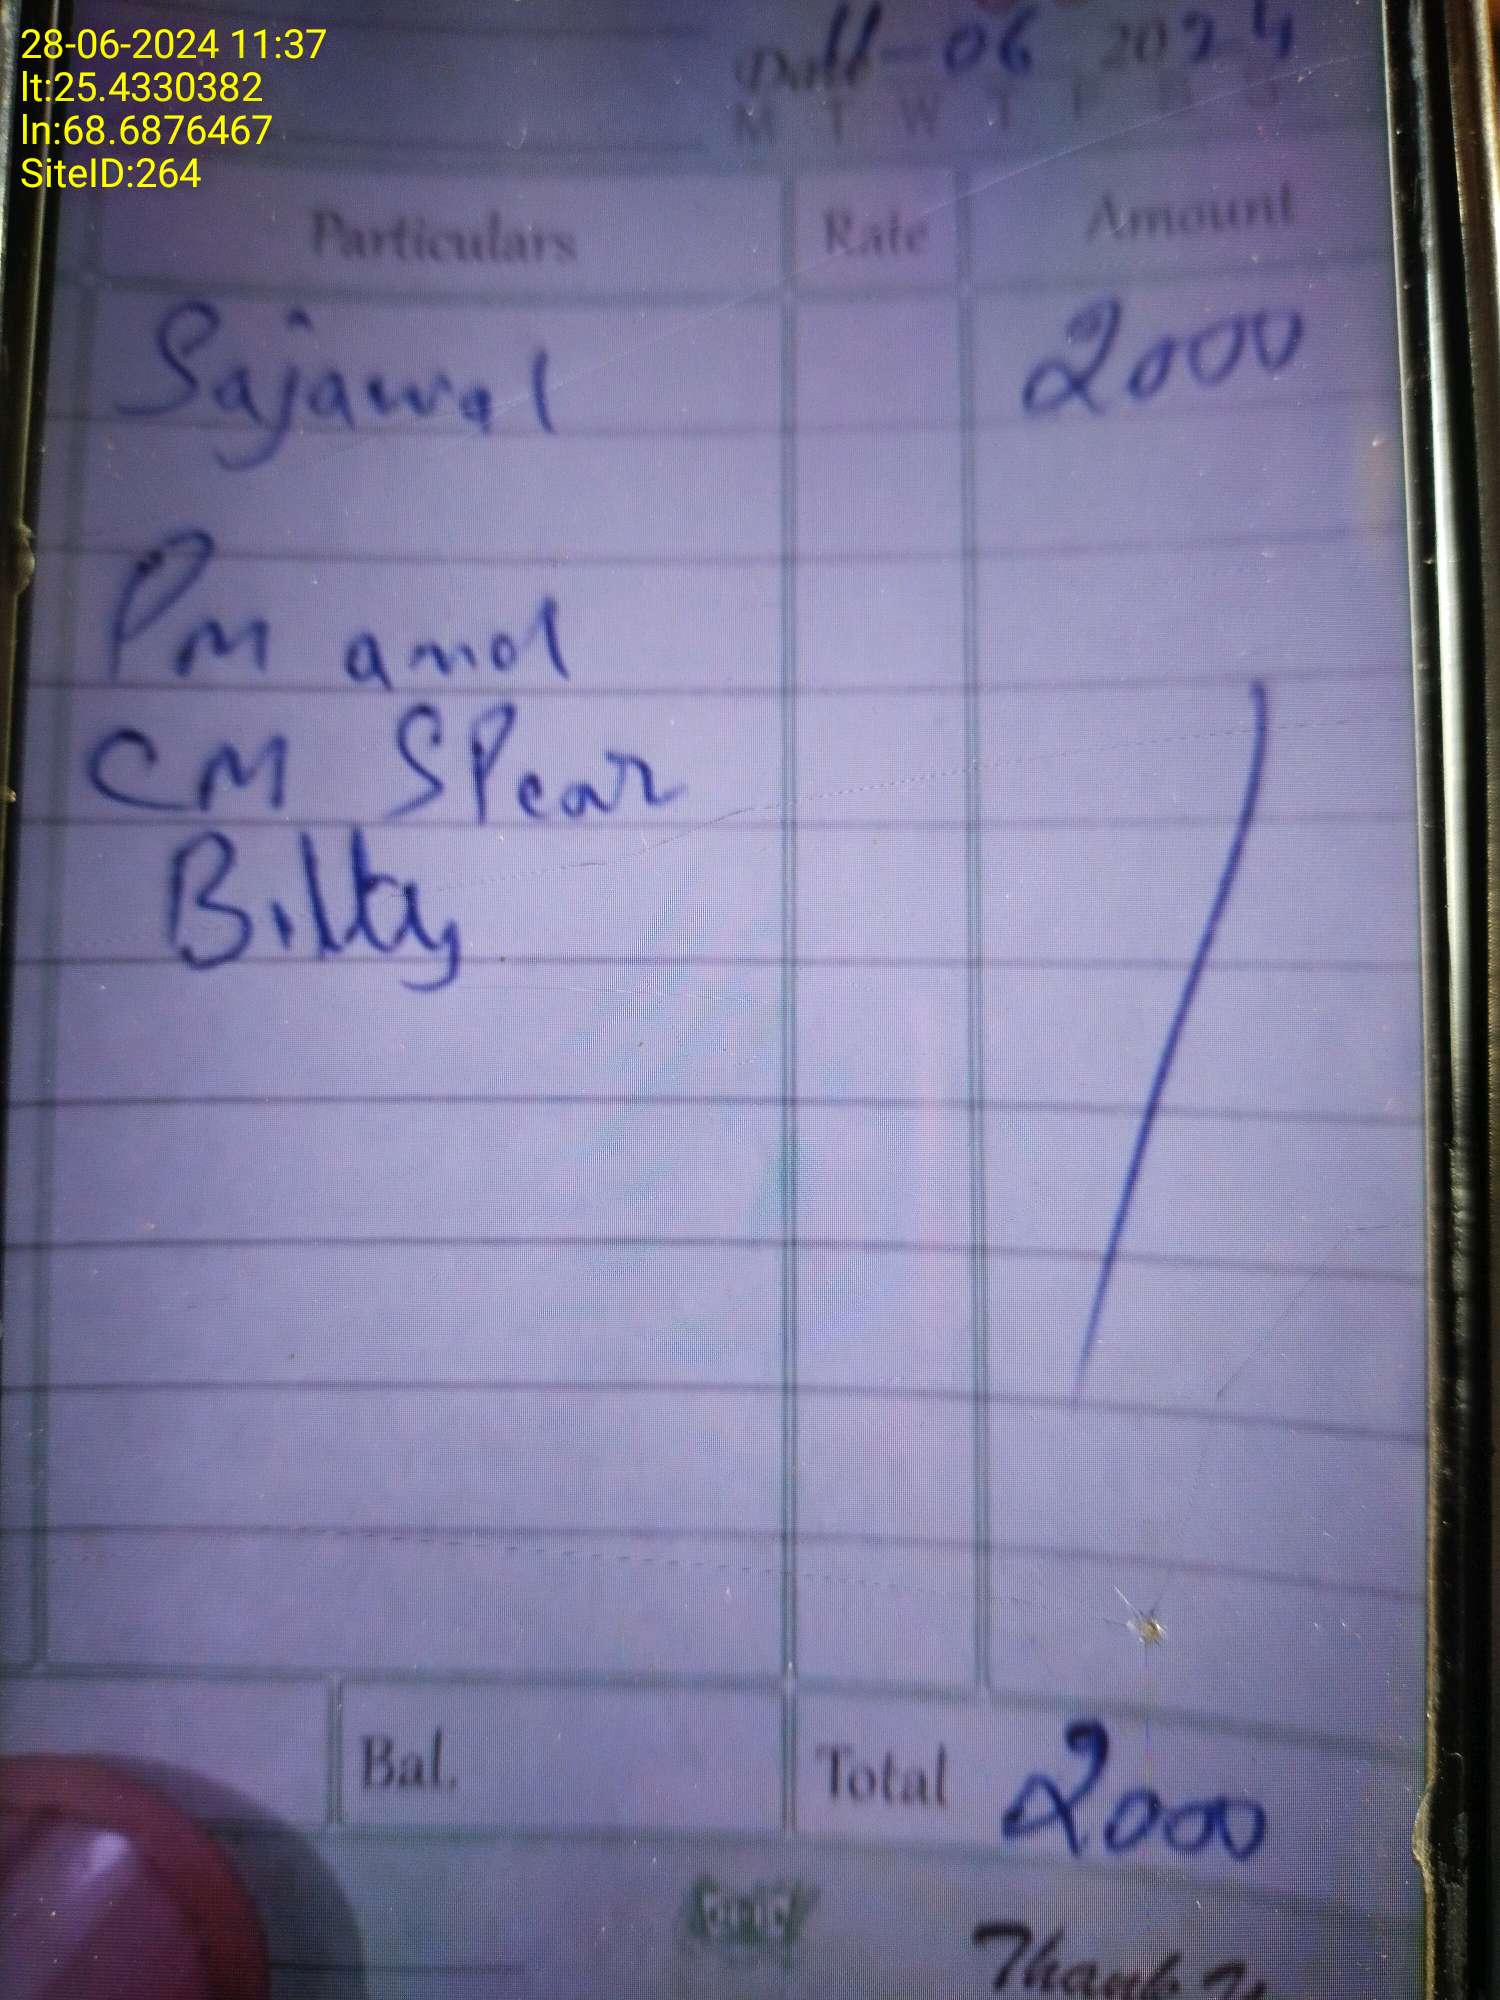 28-06-2024 11:37
lt:25.4330382
ln:68.6876467
SiteID:264
06 2024
M T W T F S S
Particulars Rate Amount
Sajawal 2000
PM amol
CM SPear
Bilty
Bal. Total 2000
Thank